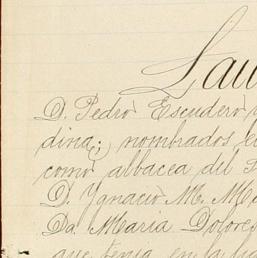 Lau
D. Pedro Escudero y
dina; nombrados e
como albacea del F
D. Ygnacio M. Me
Da. Maria Dolores
que tenia en la ha